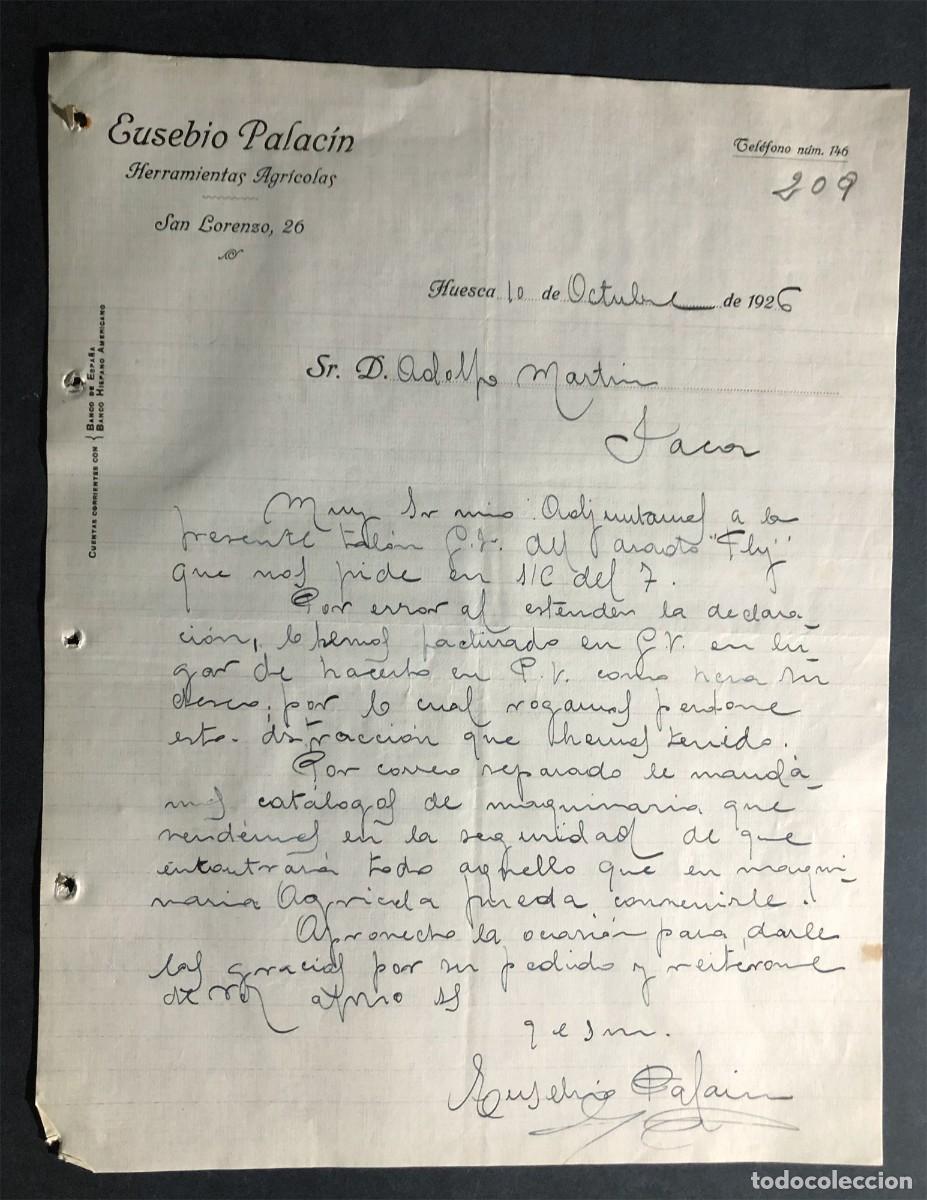 Eusebio Palacín
Herramientas Agrícolas
San Lorenzo, 26
Teléfono núm. 146
209
CUENTAS CORRIENTES CON { BANCO DE ESPAÑA
BANCO HISPANO AMERICANO
Huesca 10 de Octubre de 1926
Sr. D. Adolfo Martin
Jaca
Muy Sr mio: Adjuntamos a la
presente talón G.V. del arado "Fly"
que nos pide en s/C del 7.
Por error al estender la declara-
ción, lo hemos facturado en G.V. en lu-
gar de hacerlo en P.V. como hera su
deseo; por lo cual rogamos perdone
esta distracción que hemos tenido.
Por correo separado le mandá-
mos catálogos de maquinaria que
vendémos en la seguridad de que
encontrará todo aquello que en maqui-
naria Agricola pueda convenirle.
Aprovecho la ocasión para darle
las gracias por su pedido y reiterome
de Vd afmo ss
q e s m.
Eusebio Palacin
todocoleccion